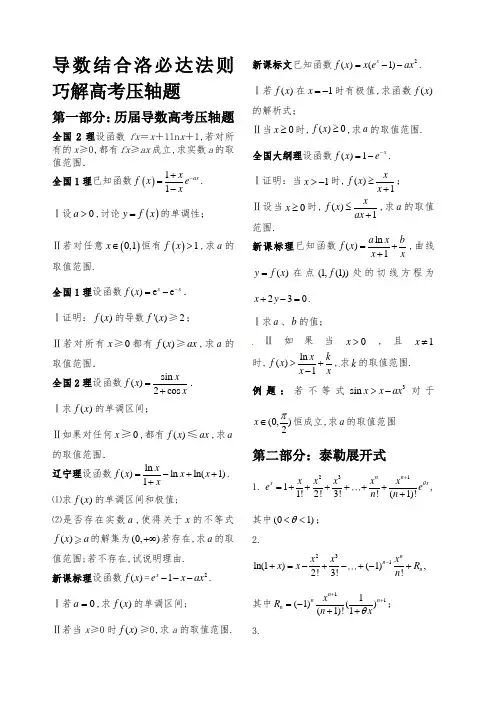 导数结合洛必达法则
巧解高考压轴题
第一部分:历届导数高考压轴题
全国 2 理设函数 fx=x+1lnx+1,若对所
有的 x≥0,都有 fx≥ax 成立,求实数 a 的取
值范围.
全国 1 理已知函数 $f(x)=\frac{1+x}{1-x}e^{-ax}$.
Ⅰ设 $a>0$,讨论 $y=f(x)$ 的单调性;
Ⅱ若对任意 $x\in(0,1)$ 恒有 $f(x)>1$,求 a 的
取值范围.
全国 1 理设函数 $f(x)=e^x-e^{-x}$.
Ⅰ证明: $f(x)$ 的导数 $f'(x)≥2$;
Ⅱ若对所有 $x≥0$ 都有 $f(x)≥ax$,求 a 的
取值范围.
全国 2 理设函数 $f(x)=\frac{\sin x}{2+\cos x}$.
Ⅰ求 $f(x)$ 的单调区间;
Ⅱ如果对任何 $x≥0$,都有 $f(x)≤ax$,求 a
的取值范围.
辽宁理设函数 $f(x)=\frac{\ln x}{1+x}-\ln x+\ln(x+1)$.
⑴求 $f(x)$ 的单调区间和极值;
⑵是否存在实数 a,使得关于 x 的不等式
$f(x)⩾a$ 的解集为 $(0,+\infty)$ 若存在,求 a 的取
值范围;若不存在,试说明理由.
新课标理设函数 $f(x)=e^x-1-x-ax^2$.
Ⅰ若 $a=0$,求 $f(x)$ 的单调区间;
Ⅱ若当 x≥0 时 $f(x)$≥0,求 a 的取值范围.
新课标文已知函数 $f(x)=x(e^x-1)-ax^2$.
Ⅰ若 $f(x)$ 在 $x=-1$ 时有极值,求函数 $f(x)$
的解析式;
Ⅱ当 $x\ge0$ 时, $f(x)\ge0$,求 a 的取值范围.
全国大纲理设函数 $f(x)=1-e^{-x}$.
Ⅰ证明:当 $x>-1$ 时, $f(x)\ge\frac{x}{x+1}$;
Ⅱ设当 $x\ge0$ 时, $f(x)\le\frac{x}{ax+1}$,求 a 的取值
范围.
新课标理已知函数 $f(x)=\frac{a\ln x}{x+1}+\frac{b}{x}$,曲线
$y=f(x)$ 在点 $(1,f(1))$ 处的切线方程为
$x+2y-3=0$.
Ⅰ求 a、b 的值;
.Ⅱ 如果当 $x>0$ ,且 $x\ne1$
时, $f(x)>\frac{\ln x}{x-1}+\frac{k}{x}$,求 k 的取值范围.
例题:若不等式 $\sin x>x-ax^3$ 对于
$x\in(0,\frac{\pi}{2})$ 恒成立,求 a 的取值范围
第二部分:泰勒展开式
1. $e^x=1+\frac{x}{1!}+\frac{x^2}{2!}+\frac{x^3}{3!}+…+\frac{x^n}{n!}+\frac{x^{n+1}}{(n+1)!}e^{\theta x}$,
其中 $(0<\theta<1)$;
2.
$\ln(1+x)=x-\frac{x^2}{2!}+\frac{x^3}{3!}-…+(-1)^{n-1}\frac{x^n}{n!}+R_n$,
其中 $R_n=(-1)^n\frac{x^{n+1}}{(n+1)!}(\frac{1}{1+\theta x})^{n+1}$;
3.